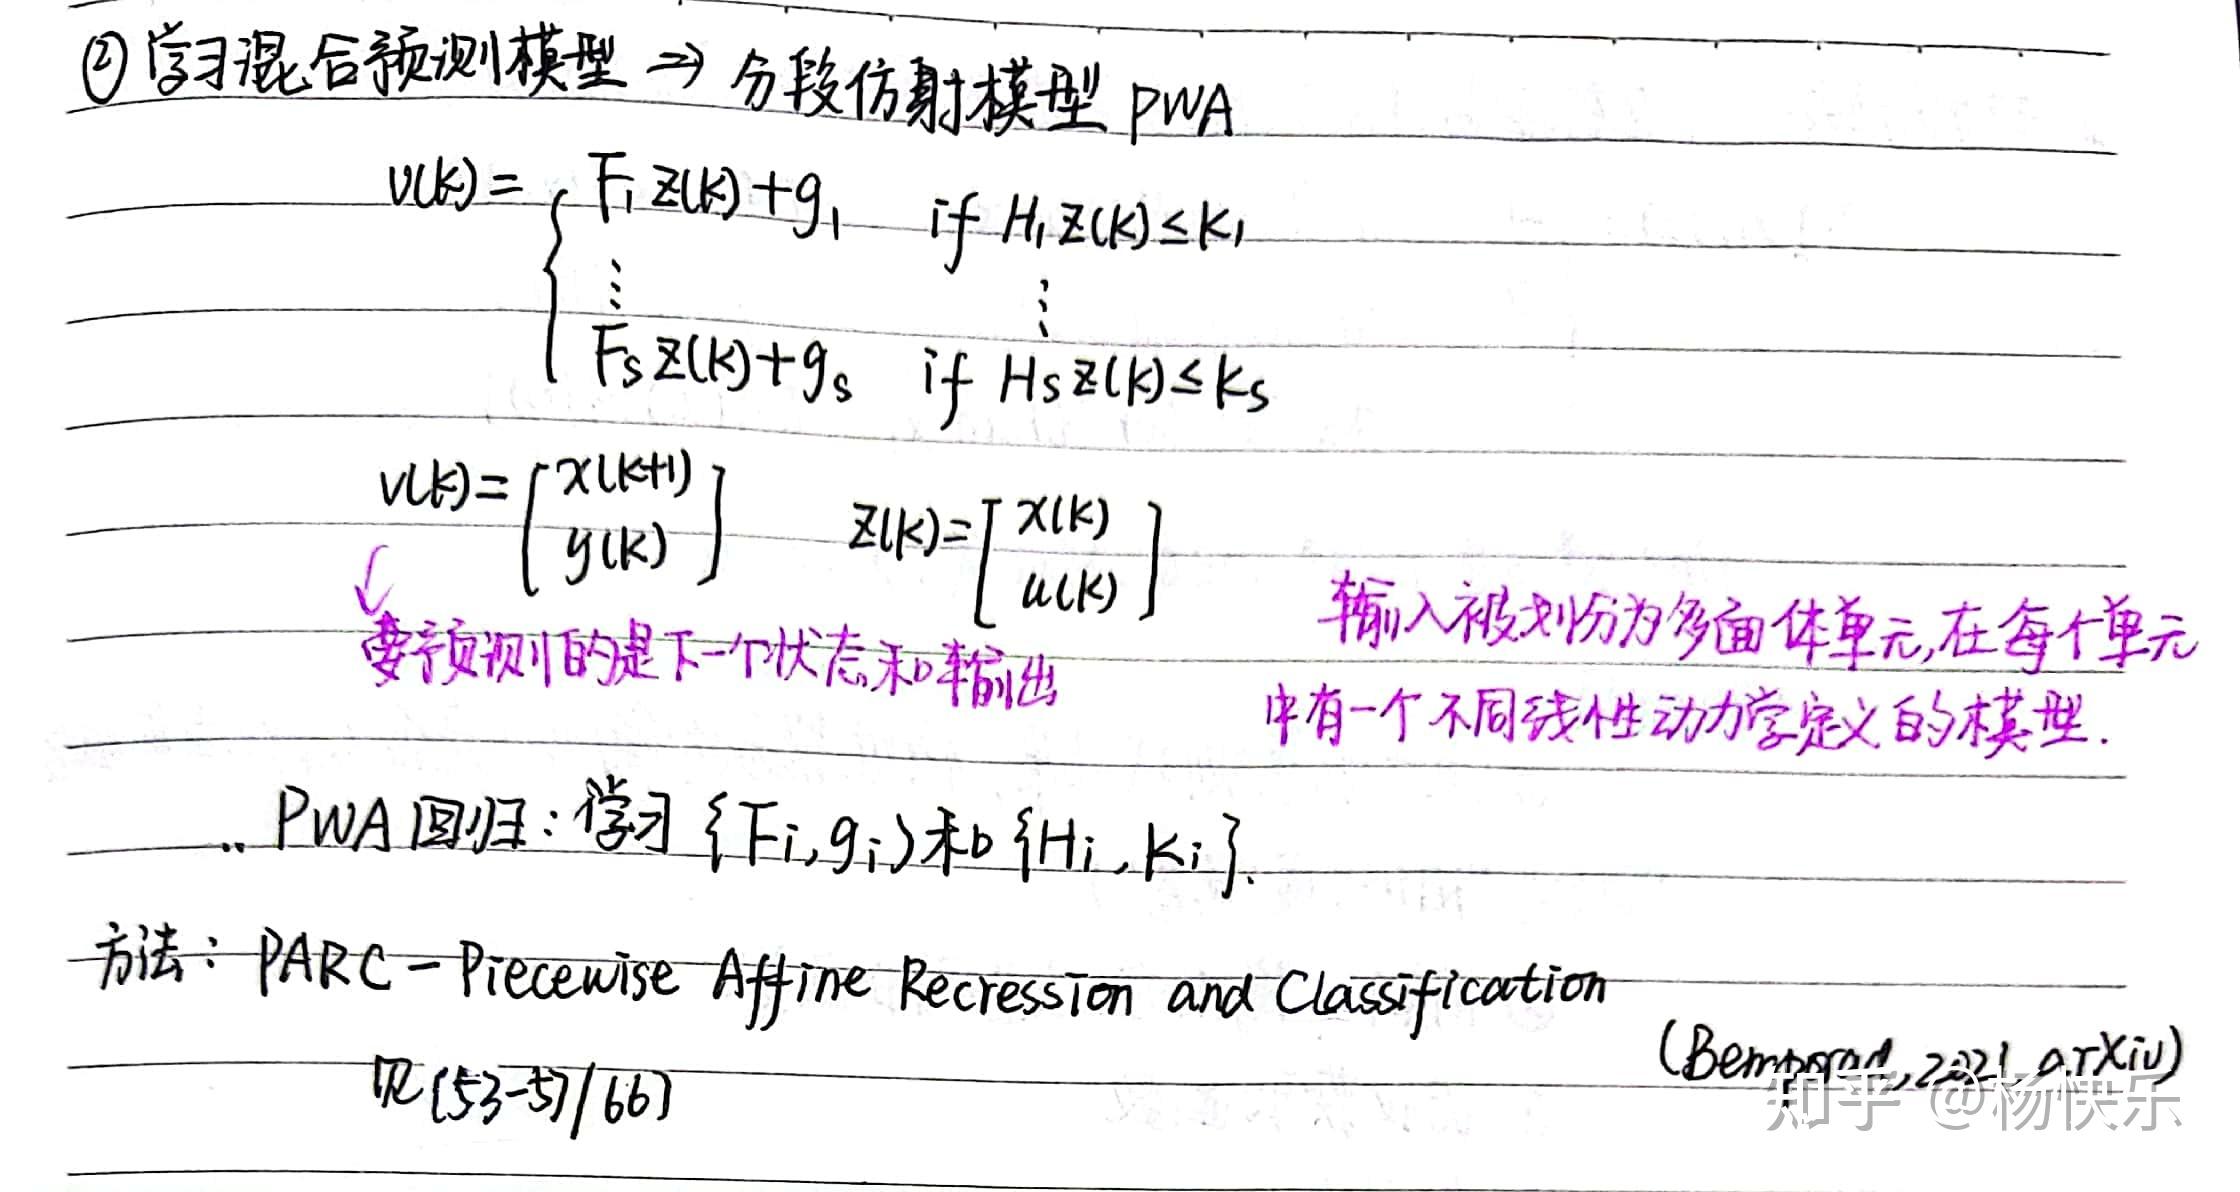 ② 学习混合预测模型 ⇒ 分段仿射模型 PWA
v(k) = { F₁z(k)+g₁ if H₁z(k)≤K₁
⋮ ⋮
Fsz(k)+gs if Hsz(k)≤Ks
v(k) = [x(k+1) y(k)] z(k) = [x(k) u(k)]
要预测的是下一个状态和输出
输入被划分为多面体单元,在每个单元
中有一个不同线性动力学定义的模型.
PWA回归:学习{Fi,gi}和{Hi,Ki}.
方法:PARC-Piecewise Affine Recression and Classification
(Bemporad,2021,arXiv)
见[53-57/66]
知乎 @杨快乐